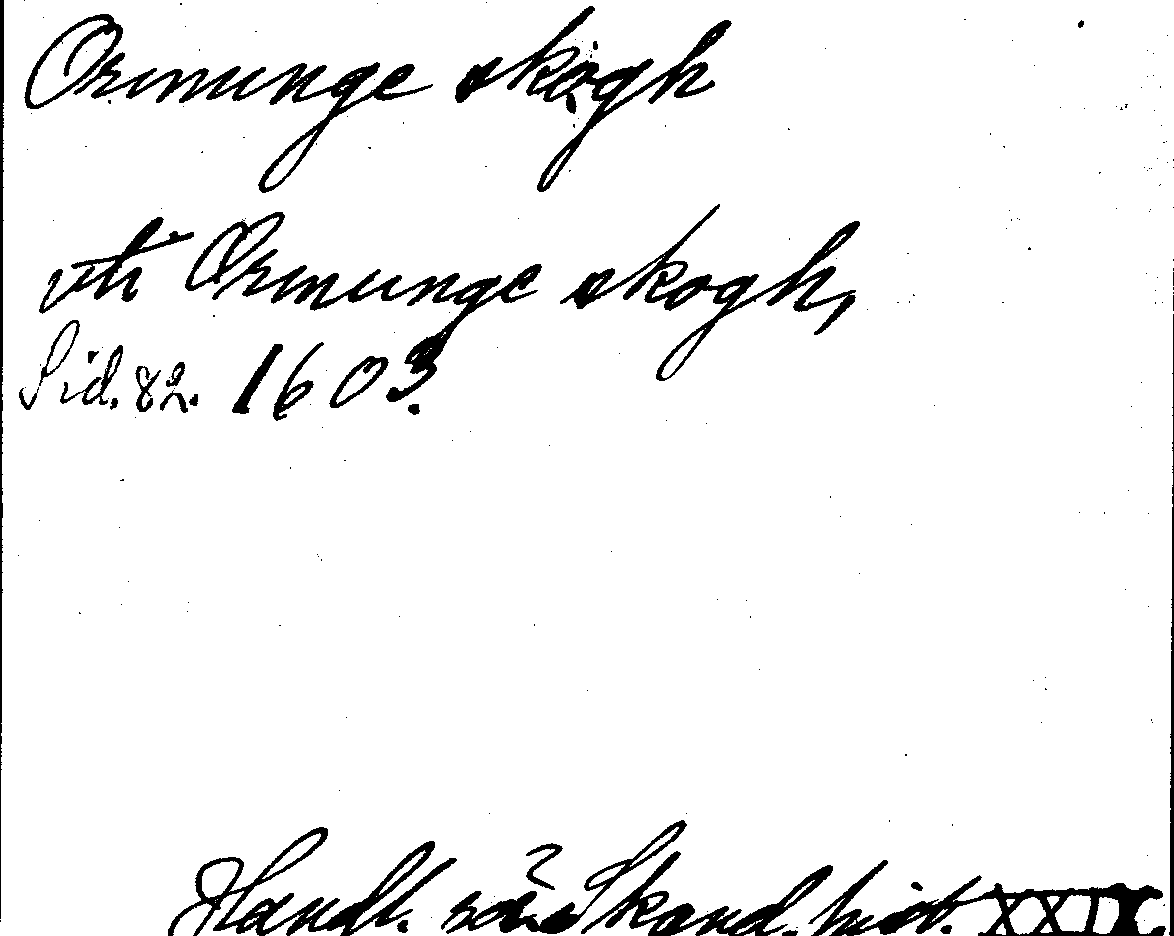 Ormunge skogh
vti Ormunge skogh,
Sid. 82. 1603.
Handl. rör. Skand. hist.